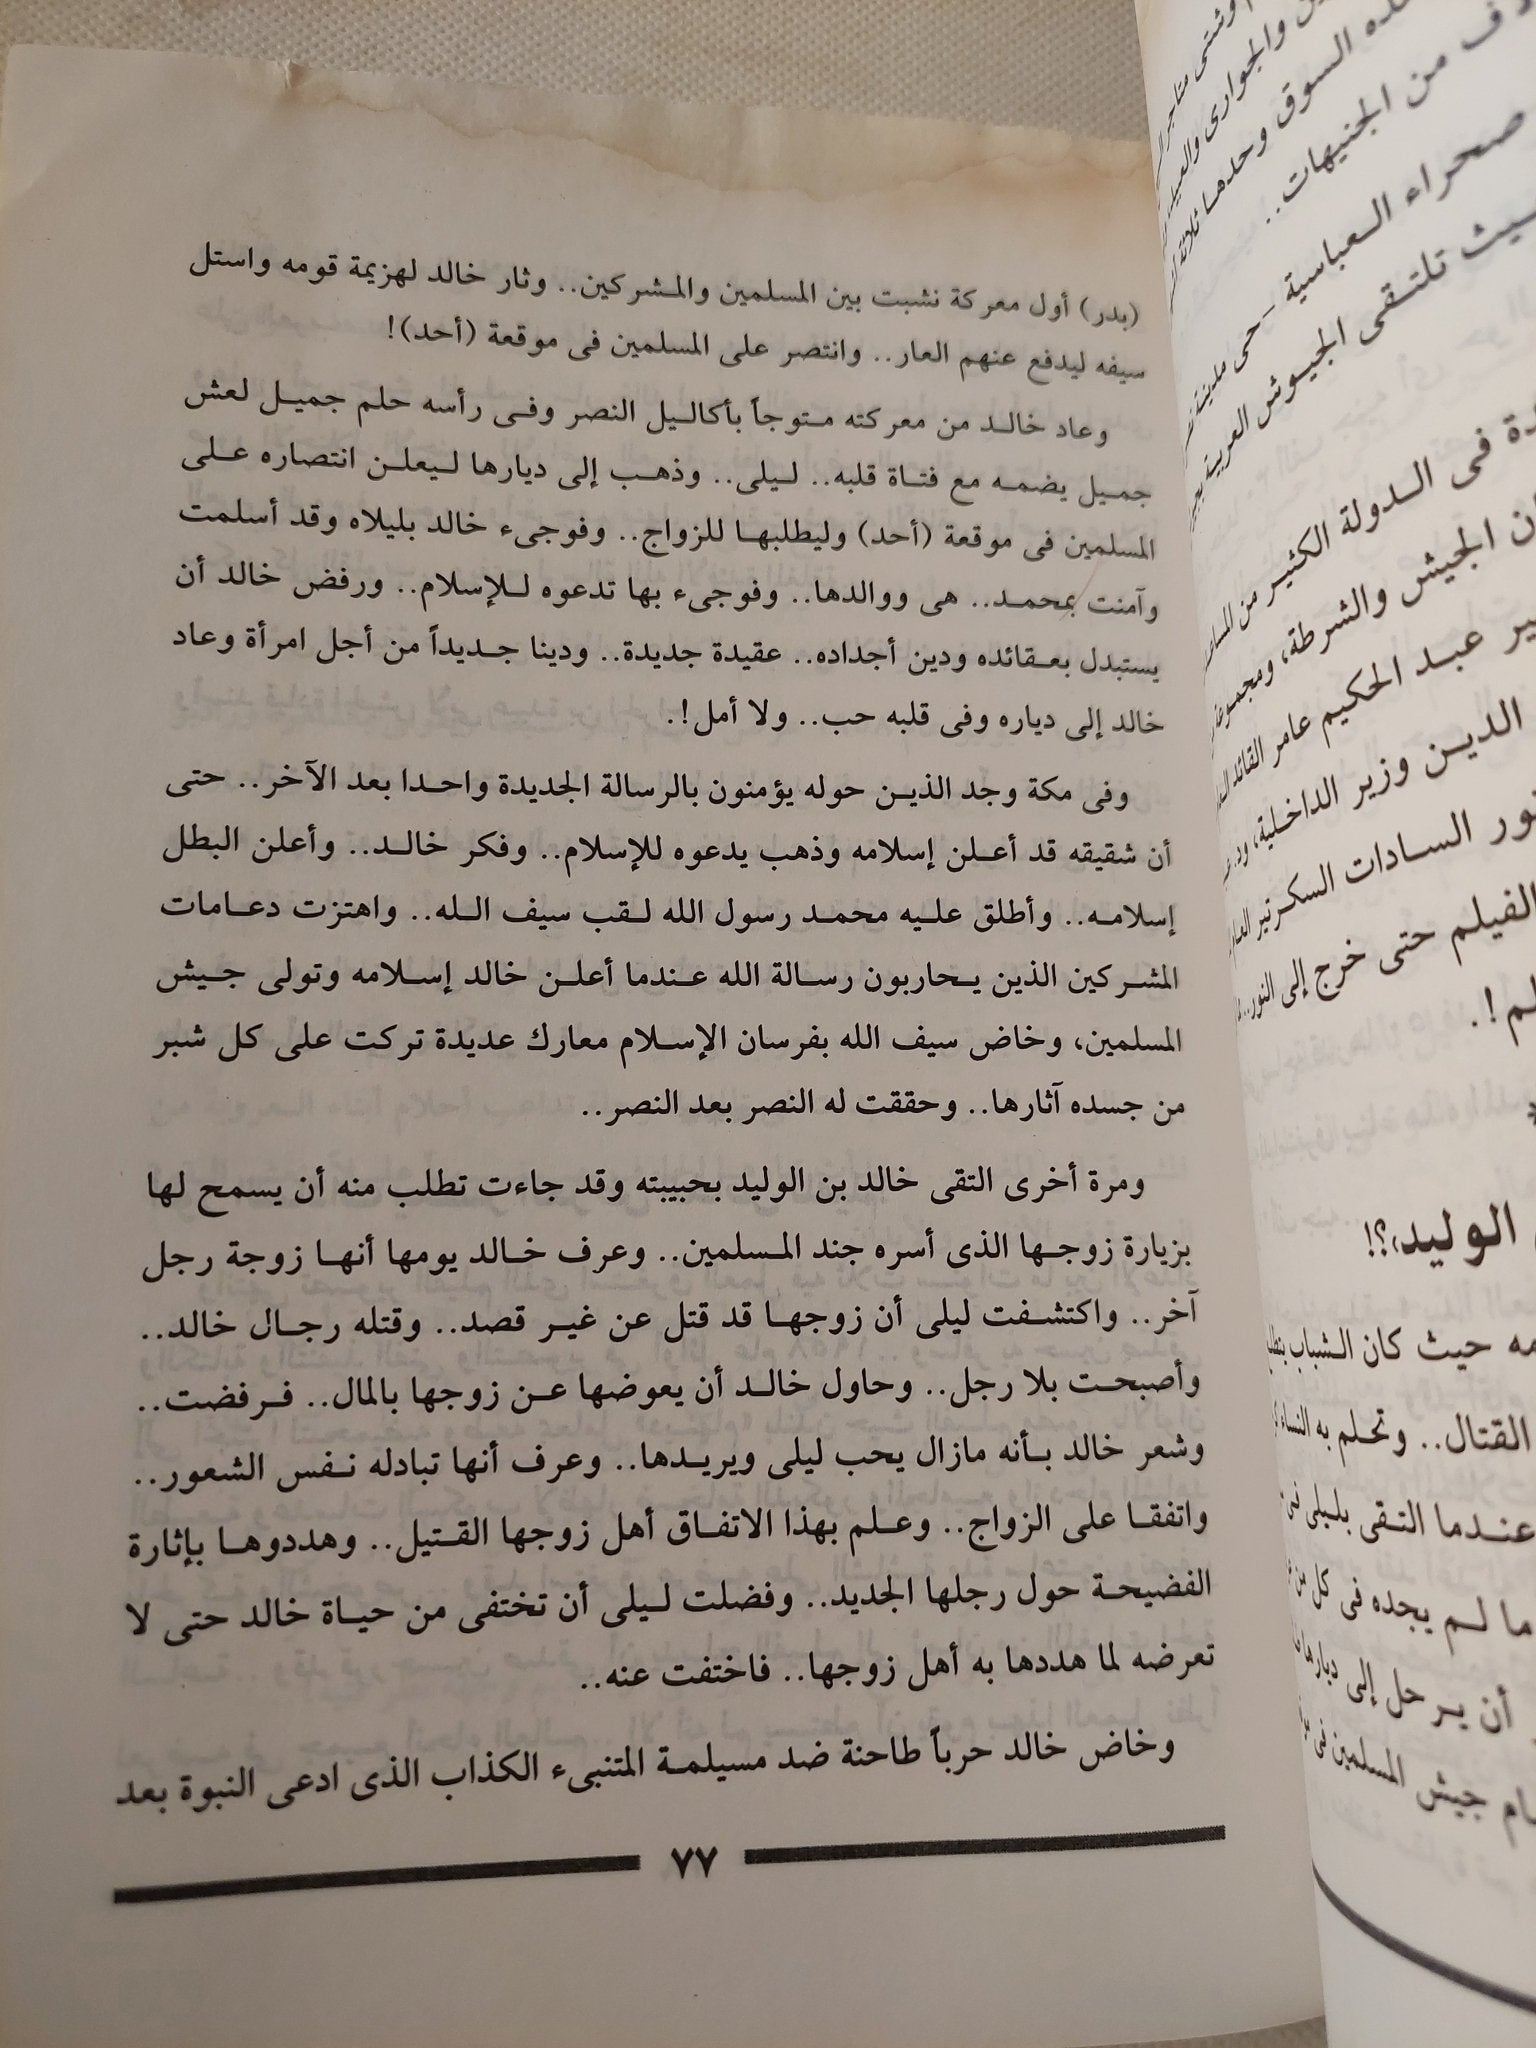 وشتى متاجر
والجوارى والعبيد
هذه السوق وحدها ثلاثة
من الجنيهات..
صحراء العباسية - حى مدينة
حيث تلتقى الجيوش العربية
فى الدولة الكثير من
الجيش والشرطة، ومجموعة
عبد الحكيم عامر القائد
الدين وزير الداخلية، ود.
السادات السكرتير العام
الفيلم حتى خرج إلى النور..
الوليد،؟!
حيث كان الشباب
القتال.. وتحلم به النساء
عندما التقى بليلى فى
ما لم يجده فى كل من
أن يرحل إلى ديارها
جيش المسلمين فى
(بدر) أول معركة نشبت بين المسلمين والمشركين.. وثار خالد لهزيمة قومه واستل
سيفه ليدفع عنهم العار.. وانتصر على المسلمين فى موقعة (أحد)!
وعاد خالد من معركته متوجاً بأكاليل النصر وفى رأسه حلم جميل لعش
جميل يضمه مع فتاة قلبه.. ليلى.. وذهب إلى ديارها ليعلن انتصاره على
المسلمين فى موقعة (أحد) وليطلبها للزواج.. وفوجىء خالد بليلاه وقد أسلمت
وآمنت بمحمد.. هى ووالدها.. وفوجىء بها تدعوه للإسلام.. ورفض خالد أن
يستبدل بعقائده ودين أجداده.. عقيدة جديدة.. ودينا جديداً من أجل امرأة وعاد
خالد إلى دياره وفى قلبه حب.. ولا أمل!.
وفى مكة وجد الذين حوله يؤمنون بالرسالة الجديدة واحدا بعد الآخر.. حتى
أن شقيقه قد أعلن إسلامه وذهب يدعوه للإسلام.. وفكر خالد.. وأعلن البطل
إسلامه.. وأطلق عليه محمد رسول الله لقب سيف الله.. واهتزت دعامات
المشركين الذين يحاربون رسالة الله عندما أعلن خالد إسلامه وتولى جيش
المسلمين، وخاض سيف الله بفرسان الإسلام معارك عديدة تركت على كل شبر
من جسده آثارها.. وحققت له النصر بعد النصر..
ومرة أخرى التقى خالد بن الوليد بحبيبته وقد جاءت تطلب منه أن يسمح لها
بزيارة زوجها الذى أسره جند المسلمين.. وعرف خالد يومها أنها زوجة رجل
آخر.. واكتشفت ليلى أن زوجها قد قتل عن غير قصد.. وقتله رجال خالد..
وأصبحت بلا رجل.. وحاول خالد أن يعوضها عن زوجها بالمال.. فرفضت..
وشعر خالد بأنه مازال يحب ليلى ويريدها.. وعرف أنها تبادله نفس الشعور..
واتفقا على الزواج.. وعلم بهذا الاتفاق أهل زوجها القتيل.. وهددوها بإثارة
الفضيحة حول رجلها الجديد.. وفضلت ليلى أن تختفى من حياة خالد حتى لا
تعرضه لما هددها به أهل زوجها.. فاختفت عنه..
وخاض خالد حرباً طاحنة ضد مسيلمة المتنبىء الكذاب الذى ادعى النبوة بعد
٧٧